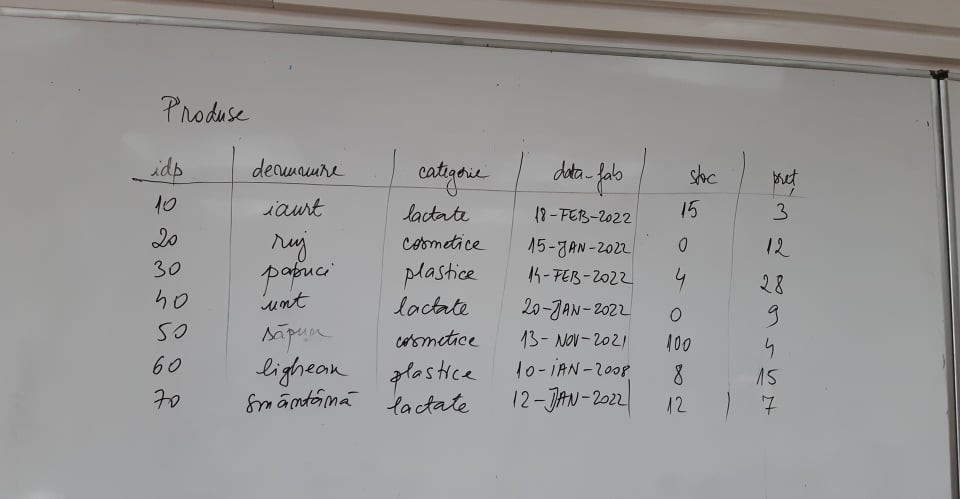 Produse
idp denumire categorie data-fab stoc preț
10 iaurt lactate 18-FEB-2022 15 3
20 ruj cosmetice 15-JAN-2022 0 12
30 papuci plastice 14-FEB-2022 4 28
40 unt lactate 20-JAN-2022 0 9
50 săpun cosmetice 13-NOV-2021 100 4
60 lighean plastice 10-iAN-2008 8 15
70 smântână lactate 12-JAN-2022 12 7